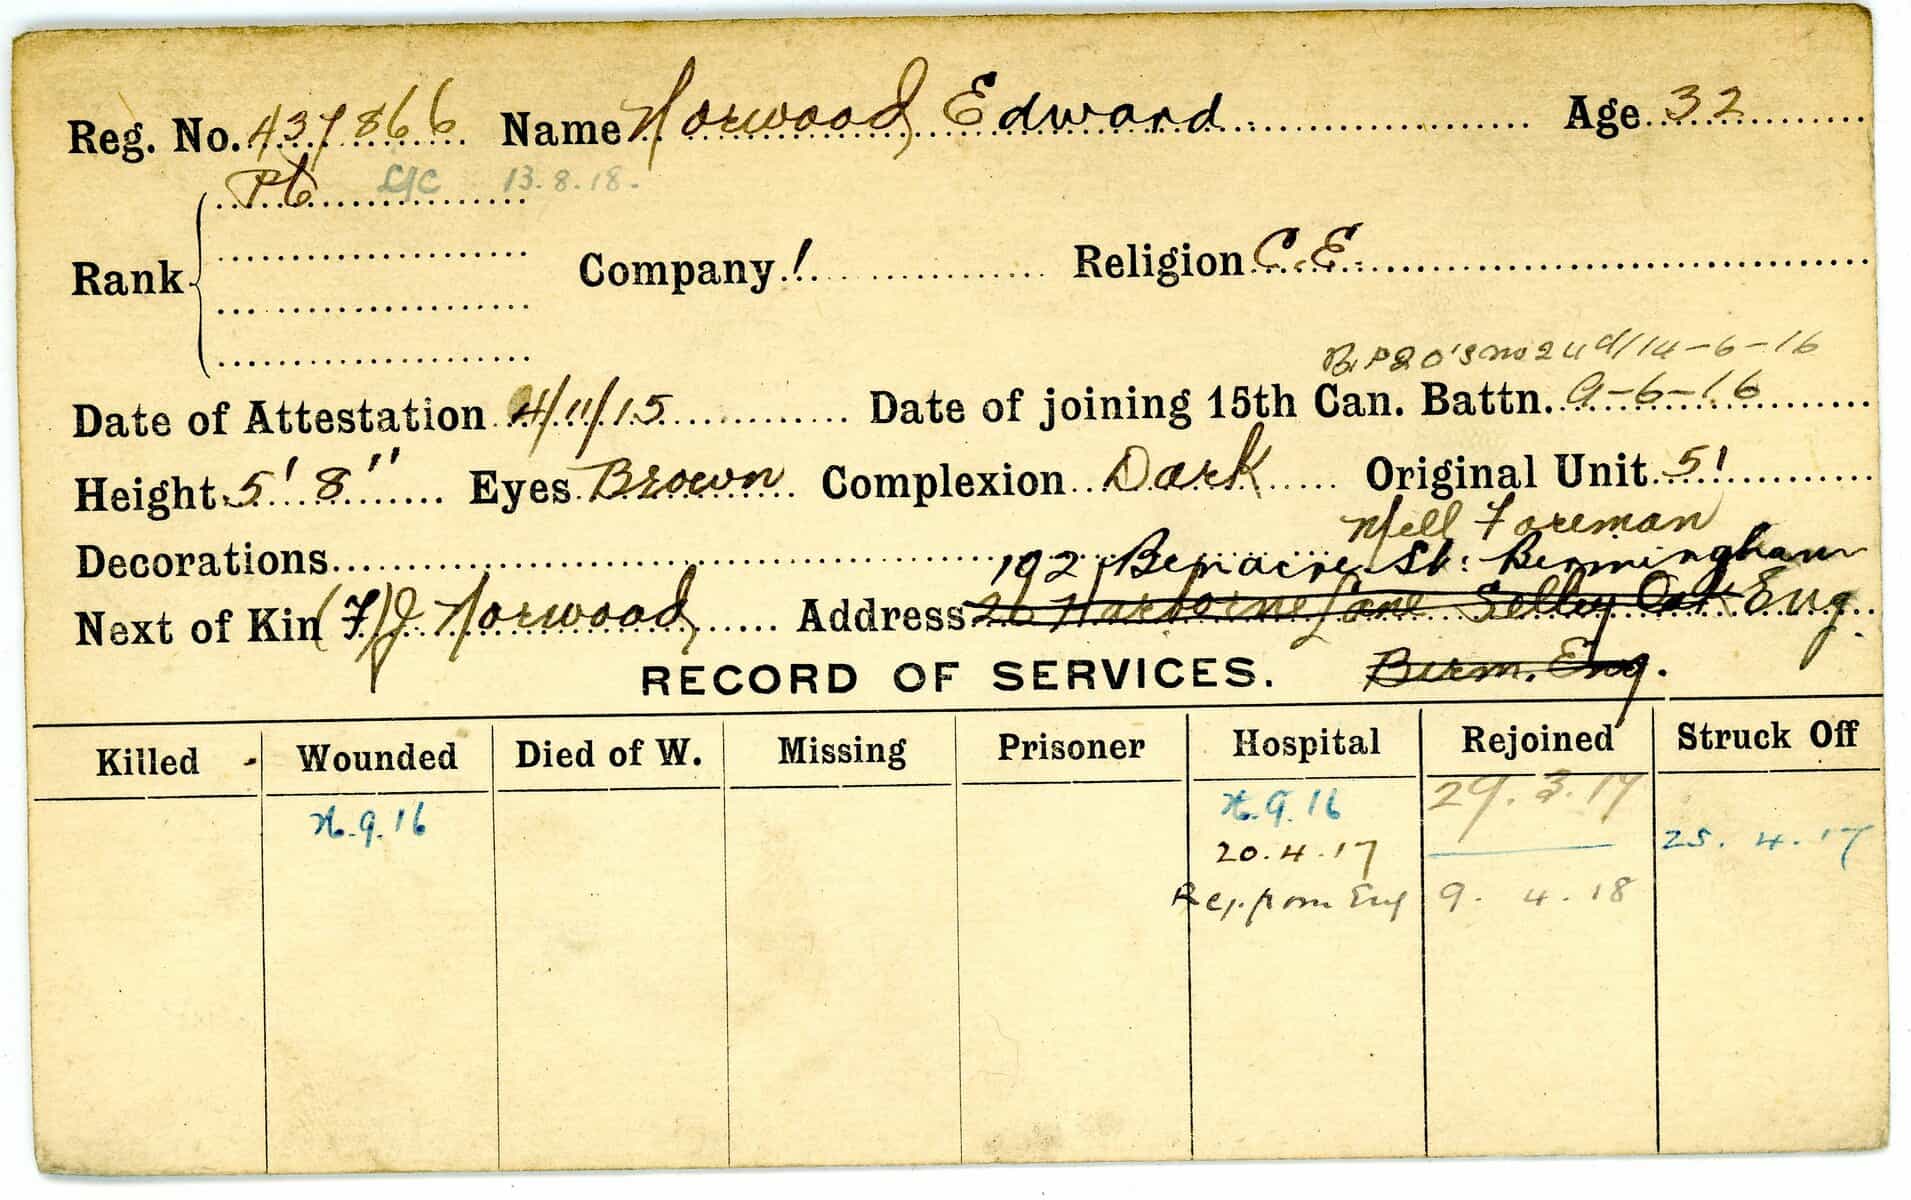 Reg. No. 437866 Name Norwood, Edward Age 32
Pte L/C 13.8.18.
Rank Company 1 Religion C.E.
14-6-16
Date of Attestation 4/11/15 Date of joining 15th Can. Battn. 9-6-16
Height 5' 8" Eyes Brown Complexion Dark Original Unit 51
Foreman
Decorations 192 Benacre St. Birmingham
Next of Kin (F) J Norwood Address 26 Harborne Lane Selley Oak Eng.
RECORD OF SERVICES. Birm. Eng.
Killed Wounded Died of W. Missing Prisoner Hospital Rejoined Struck Off
.9.16 .9.16 29.3.17
20.4.17 25.4.17
Rej. from Eng 9.4.18